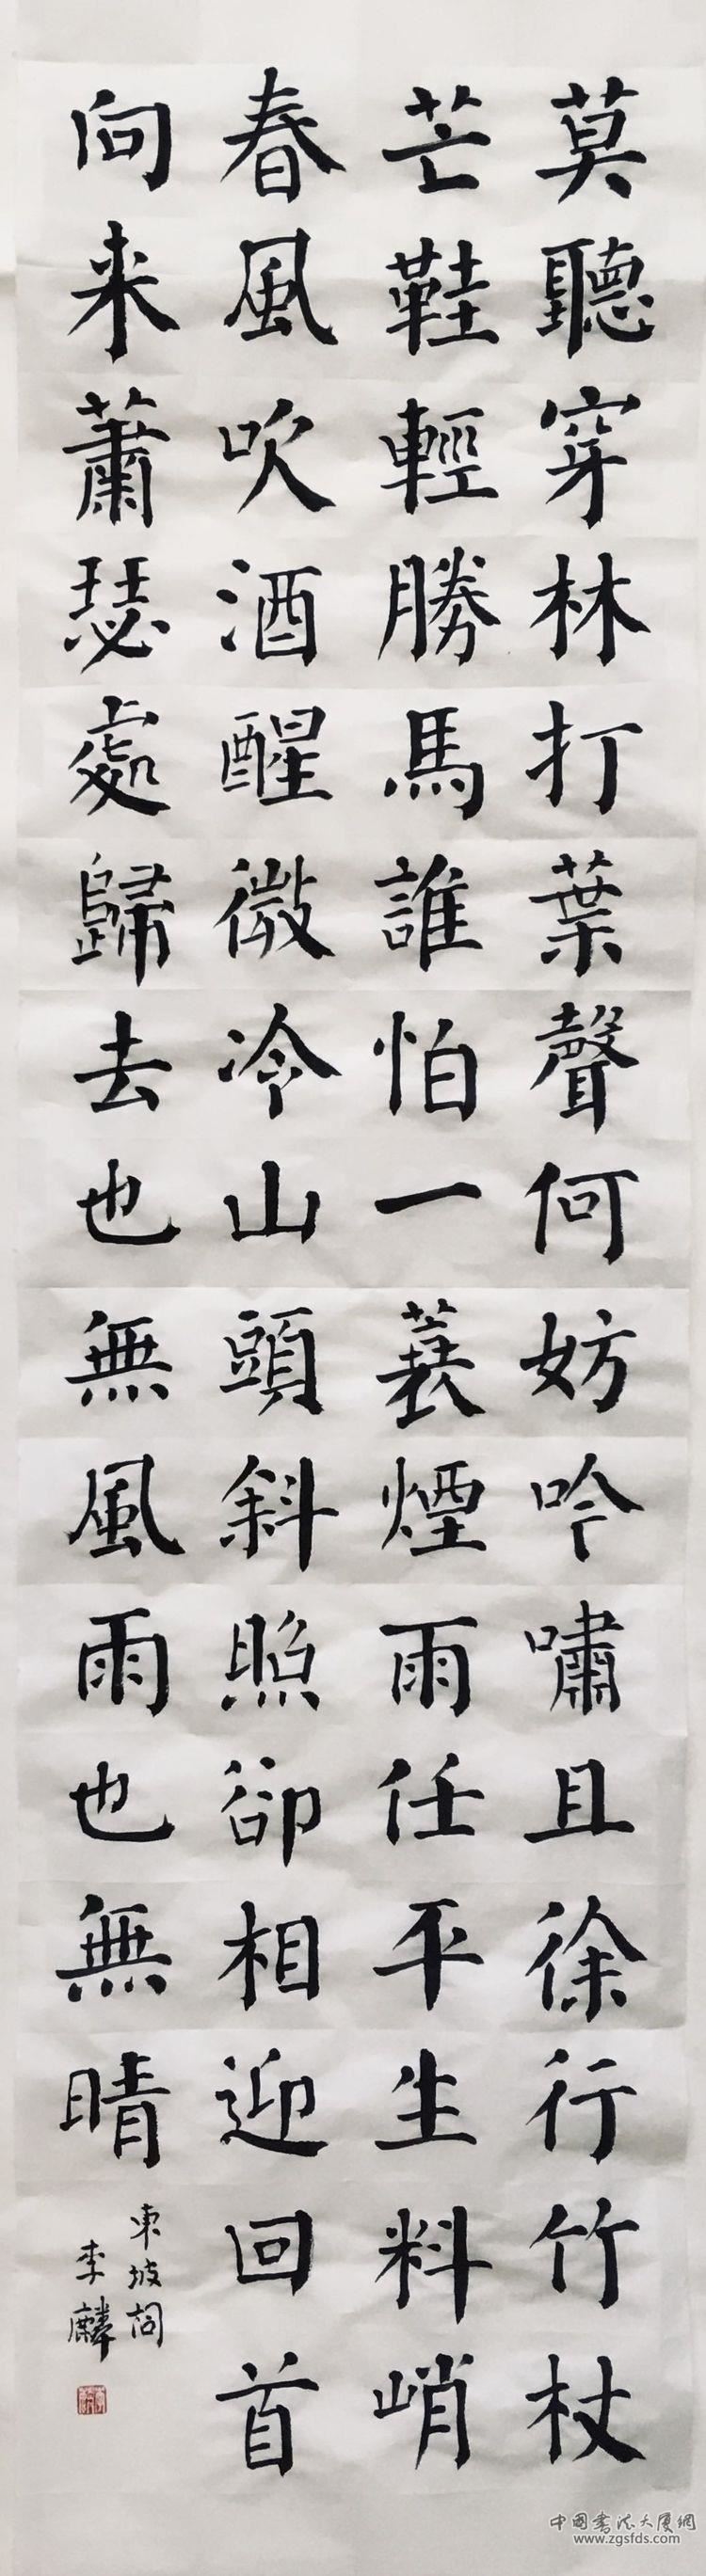 莫聽穿林打葉聲何妨吟嘯且徐行竹杖
芒鞋輕勝馬誰怕一蓑煙雨任平生料峭
春風吹酒醒微冷山頭斜照卻相迎回首
向来蕭瑟處歸去也無風雨也無晴
東坡詞
李麟
中國書法大廈網
www.zgsfds.com